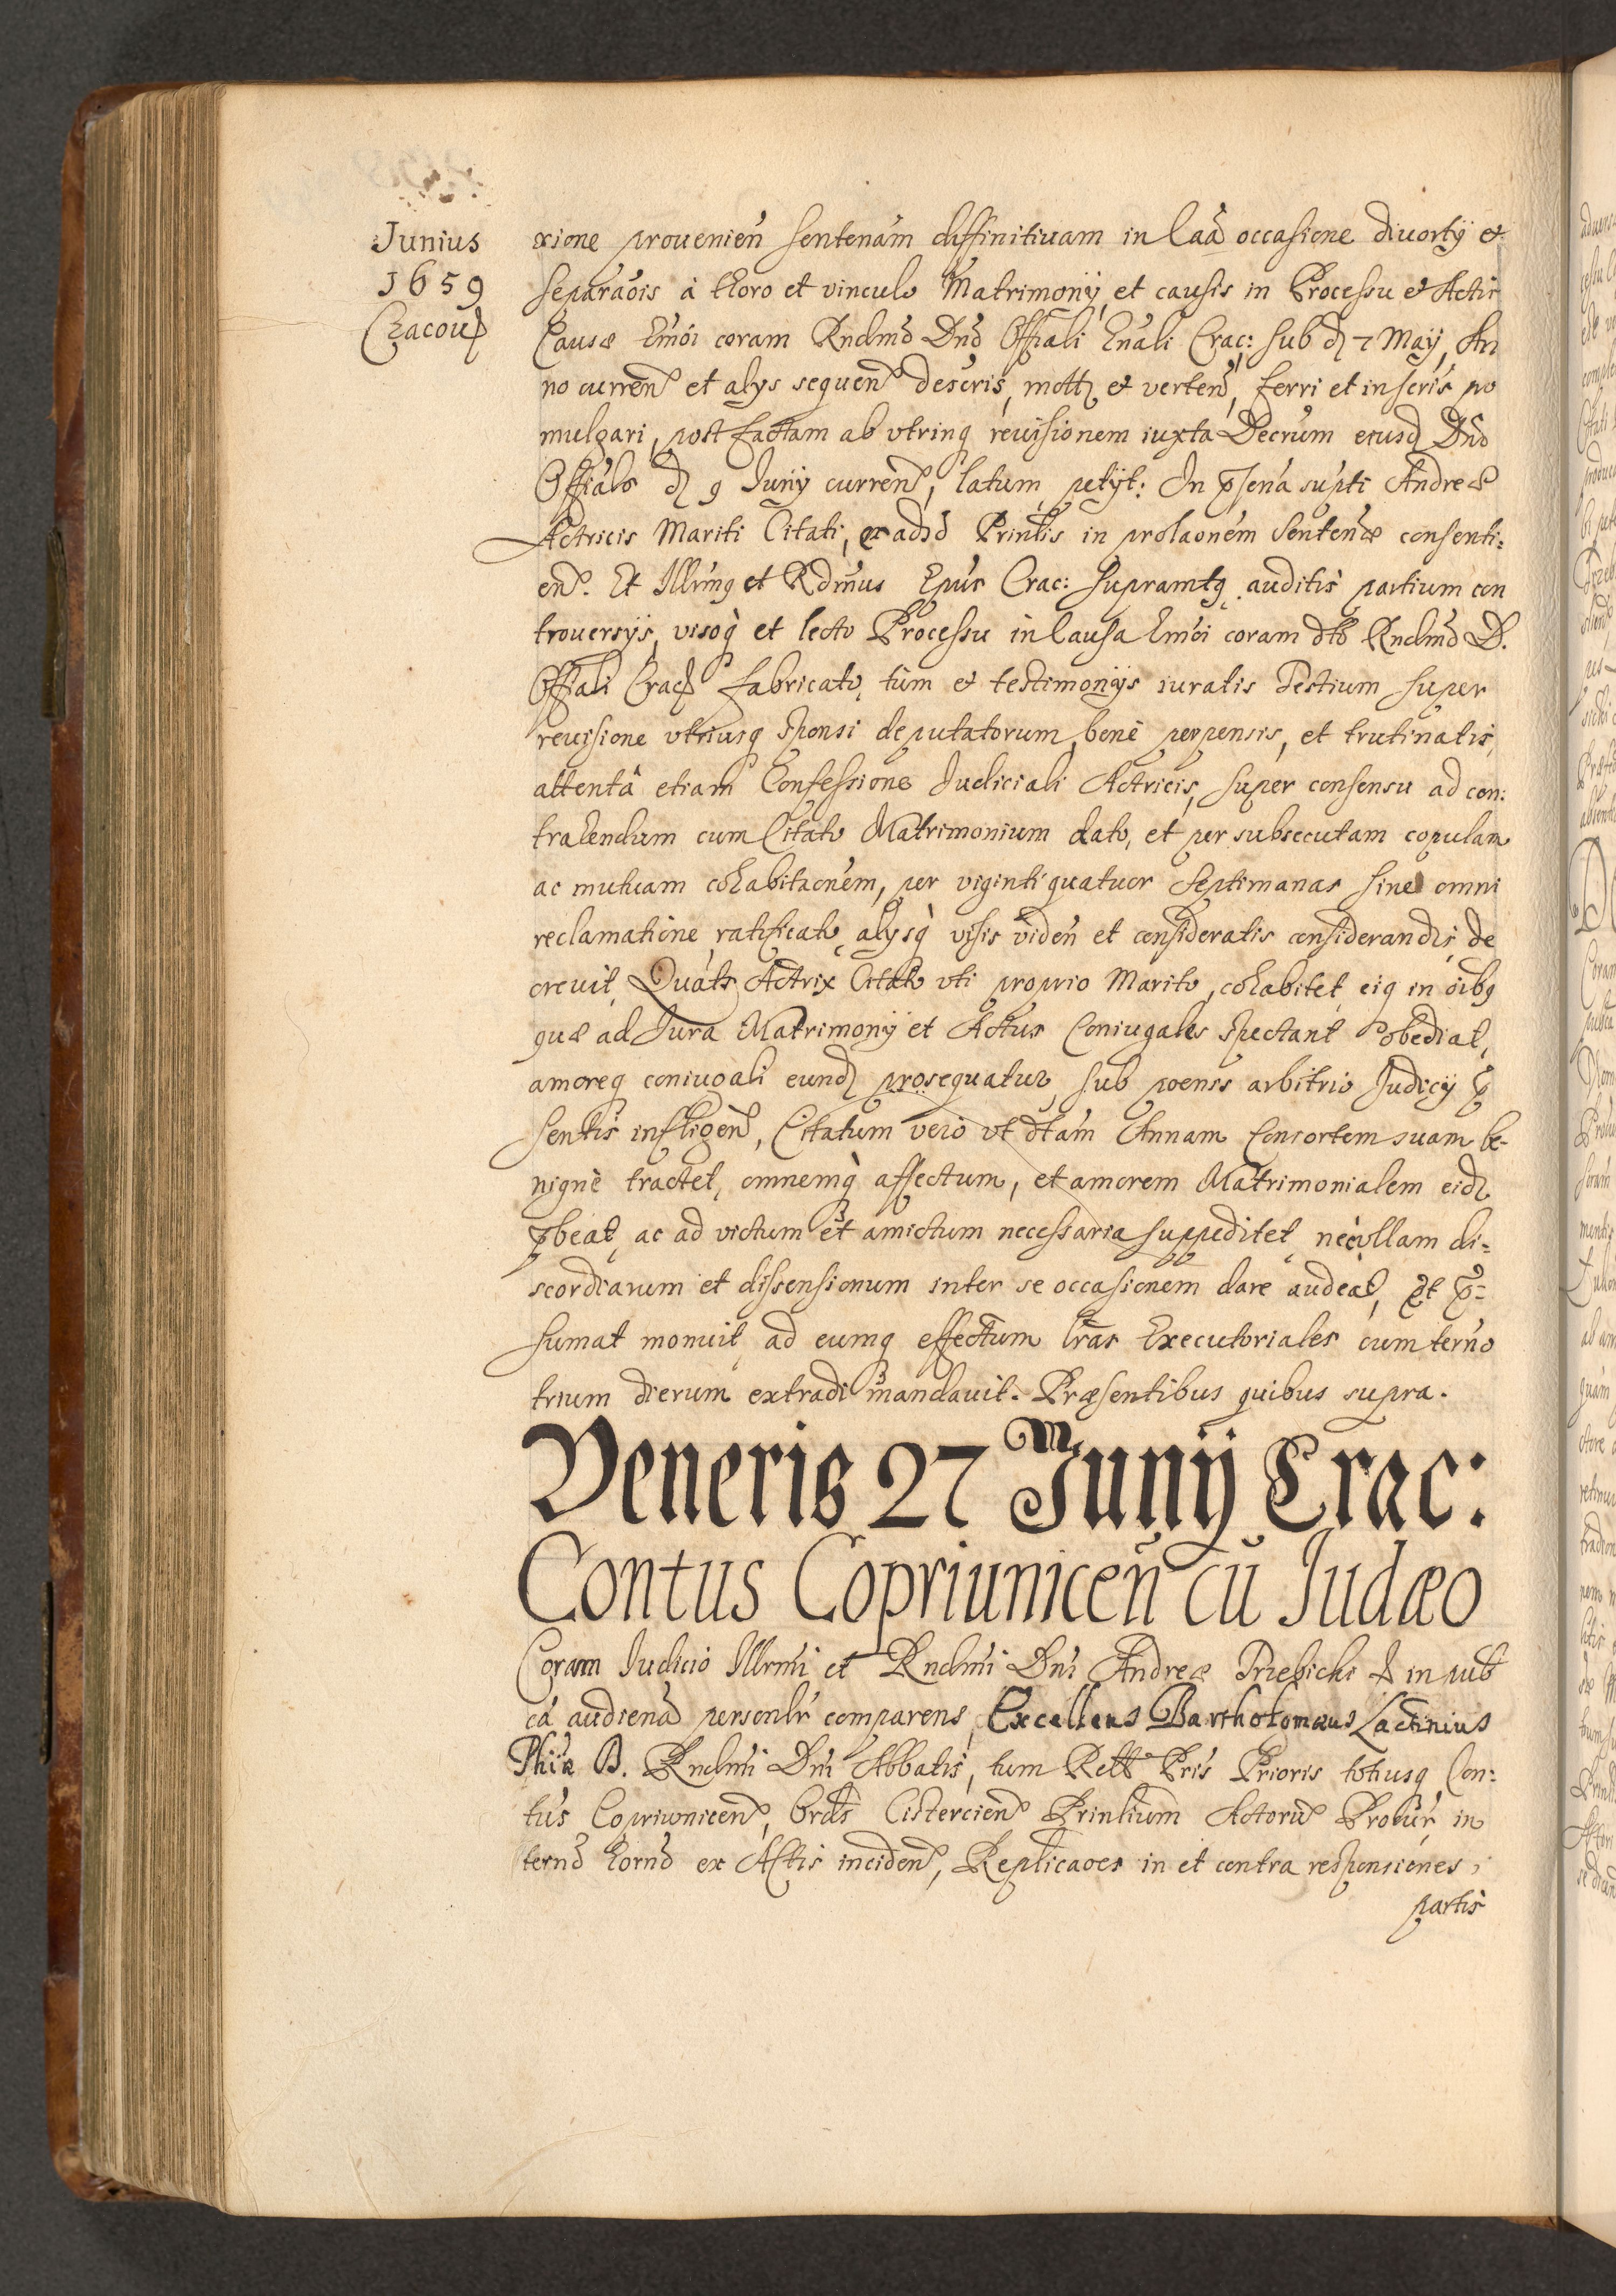 Junius
1659
Cracou
xione prouenien̄ sentenām diffinitiuam in Caā occasione diuortÿ et
separaōis à thoro et vinculo Matrimonÿ, et causis in Processu et Actis
Causæ hmōi coram Rndmō Dnō Offiali Gnāli Crac: sub d 7 Maÿ, An
no curren et alÿs sequen descris, mott et verten, ferri et in scris pro
mulgari, post factam ab vtrinq reuisionem iuxta Decrum eiusd Dnō
Offialo d 9 Junÿ curren, latum petÿt: In psena supti Andreæ
Actricis Mariti Citati, ex adsd Prinlis in prolaonem Sentenæ consenti:
en. Et Illrmq et Rdmus Epus Crac: supramtq auditis partium con
trouersÿs, visoq̀ et lecto Processu in Causa hmōi coram dto Rndmō D.
Offiali Crac fabricato, tum et testimonÿs iuratis Testium super
reuisione vtriusq sponsi deputatorum, benè perpensis, et trutinatis,
attentâ etiam Confessione Judiciali Actricis, super consensu ad con:
trahendum cum Citato Matrimonium dato, et per subsecutam copulam
ac mutuam cohabitaonem, per viginti quatuor Septimanas sine omni
reclamatione ratificato, alysq̀ visis viden̄ et consideratis considerandis, de
creuit, Quats Actrix Citato vti proprio Marito, cohabitet, eiq in oibq
quæ ad Jura Matrimonÿ et Actus Coniugales spectant obediat,
amoreq coniugali eund prosequatur, sub poenis arbitrio Judicÿ p
sentis infligen, Citatum verò vt dtām Annam Consortem suam be-
nignè tractet, omnemq̀ affectum, et amorem Matrimonialem eid
pbeat, ac ad victum et amictum necessaria suppeditet, nec vllam di=
scordiarum et dissensionum inter se occasionem dare audeat, et p=
sumat monuit, ad eumq effectum lras Executoriales cum terno
trium dierum extradi mandauit. Præsentibus quibus supra.
Veneris 27 Junÿ Crac:
Contus Copriunicen̄ cū Judæo
Coram Judicio Illrmi et Rndmi Dni Andreæ Trzebicki in pub
cā audiena personlr comparens Excellens Bartholomæus Lactinius
Phiæ B. Rndmi Dni Abbatis, tum Prīs Prioris totiusq Con:
tus Copriwnicen, Ordis Cistercien Prinlium Actoru Procur, in
terno horno ex Actis inciden, Replicaoes in et contra responsiones,
partis